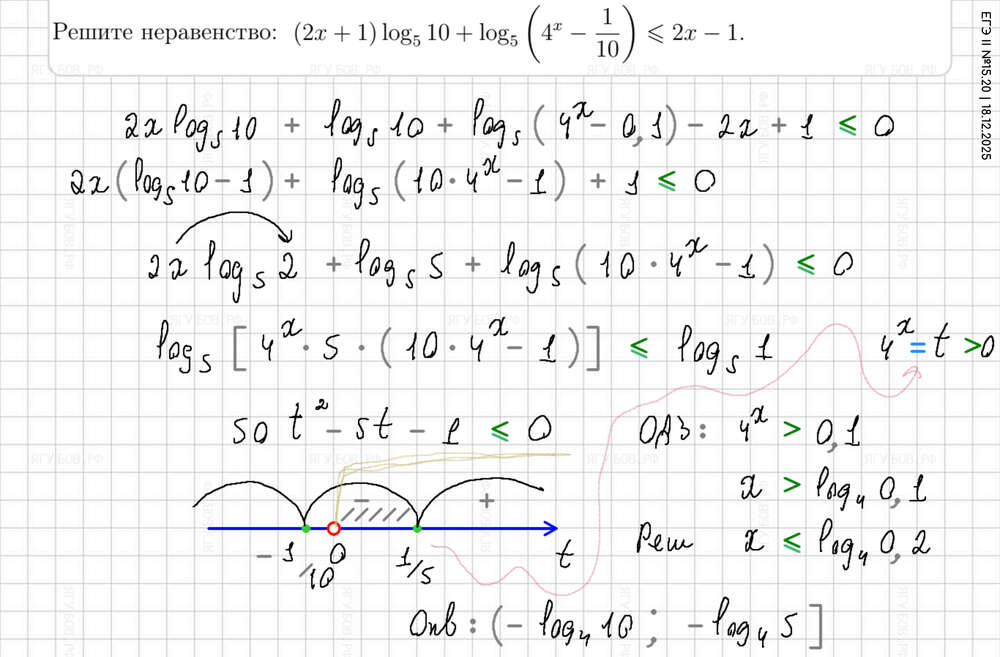 Решите неравенство: (2x + 1) log₅ 10 + log₅ (4ˣ − 1/10) ⩽ 2x − 1.
ЕГЭ II №15.20 | 18.12.2025
2x log₅ 10 + log₅ 10 + log₅ (4ˣ − 0,1) − 2x + 1 ⩽ 0
2x (log₅ 10 − 1) + log₅ (10 · 4ˣ − 1) + 1 ⩽ 0
2x log₅ 2 + log₅ 5 + log₅ (10 · 4ˣ − 1) ⩽ 0
log₅ [4ˣ · 5 · (10 · 4ˣ − 1)] ⩽ log₅ 1 4ˣ = t > 0
50 t² − 5t − 1 ⩽ 0
ОДЗ: 4ˣ > 0,1
x > log₄ 0,1
Реш x ⩽ log₄ 0,2
− +
−1/10 0 1/5 t
Отв: (− log₄ 10 ; − log₄ 5]
ЯГУБОВ.РФ